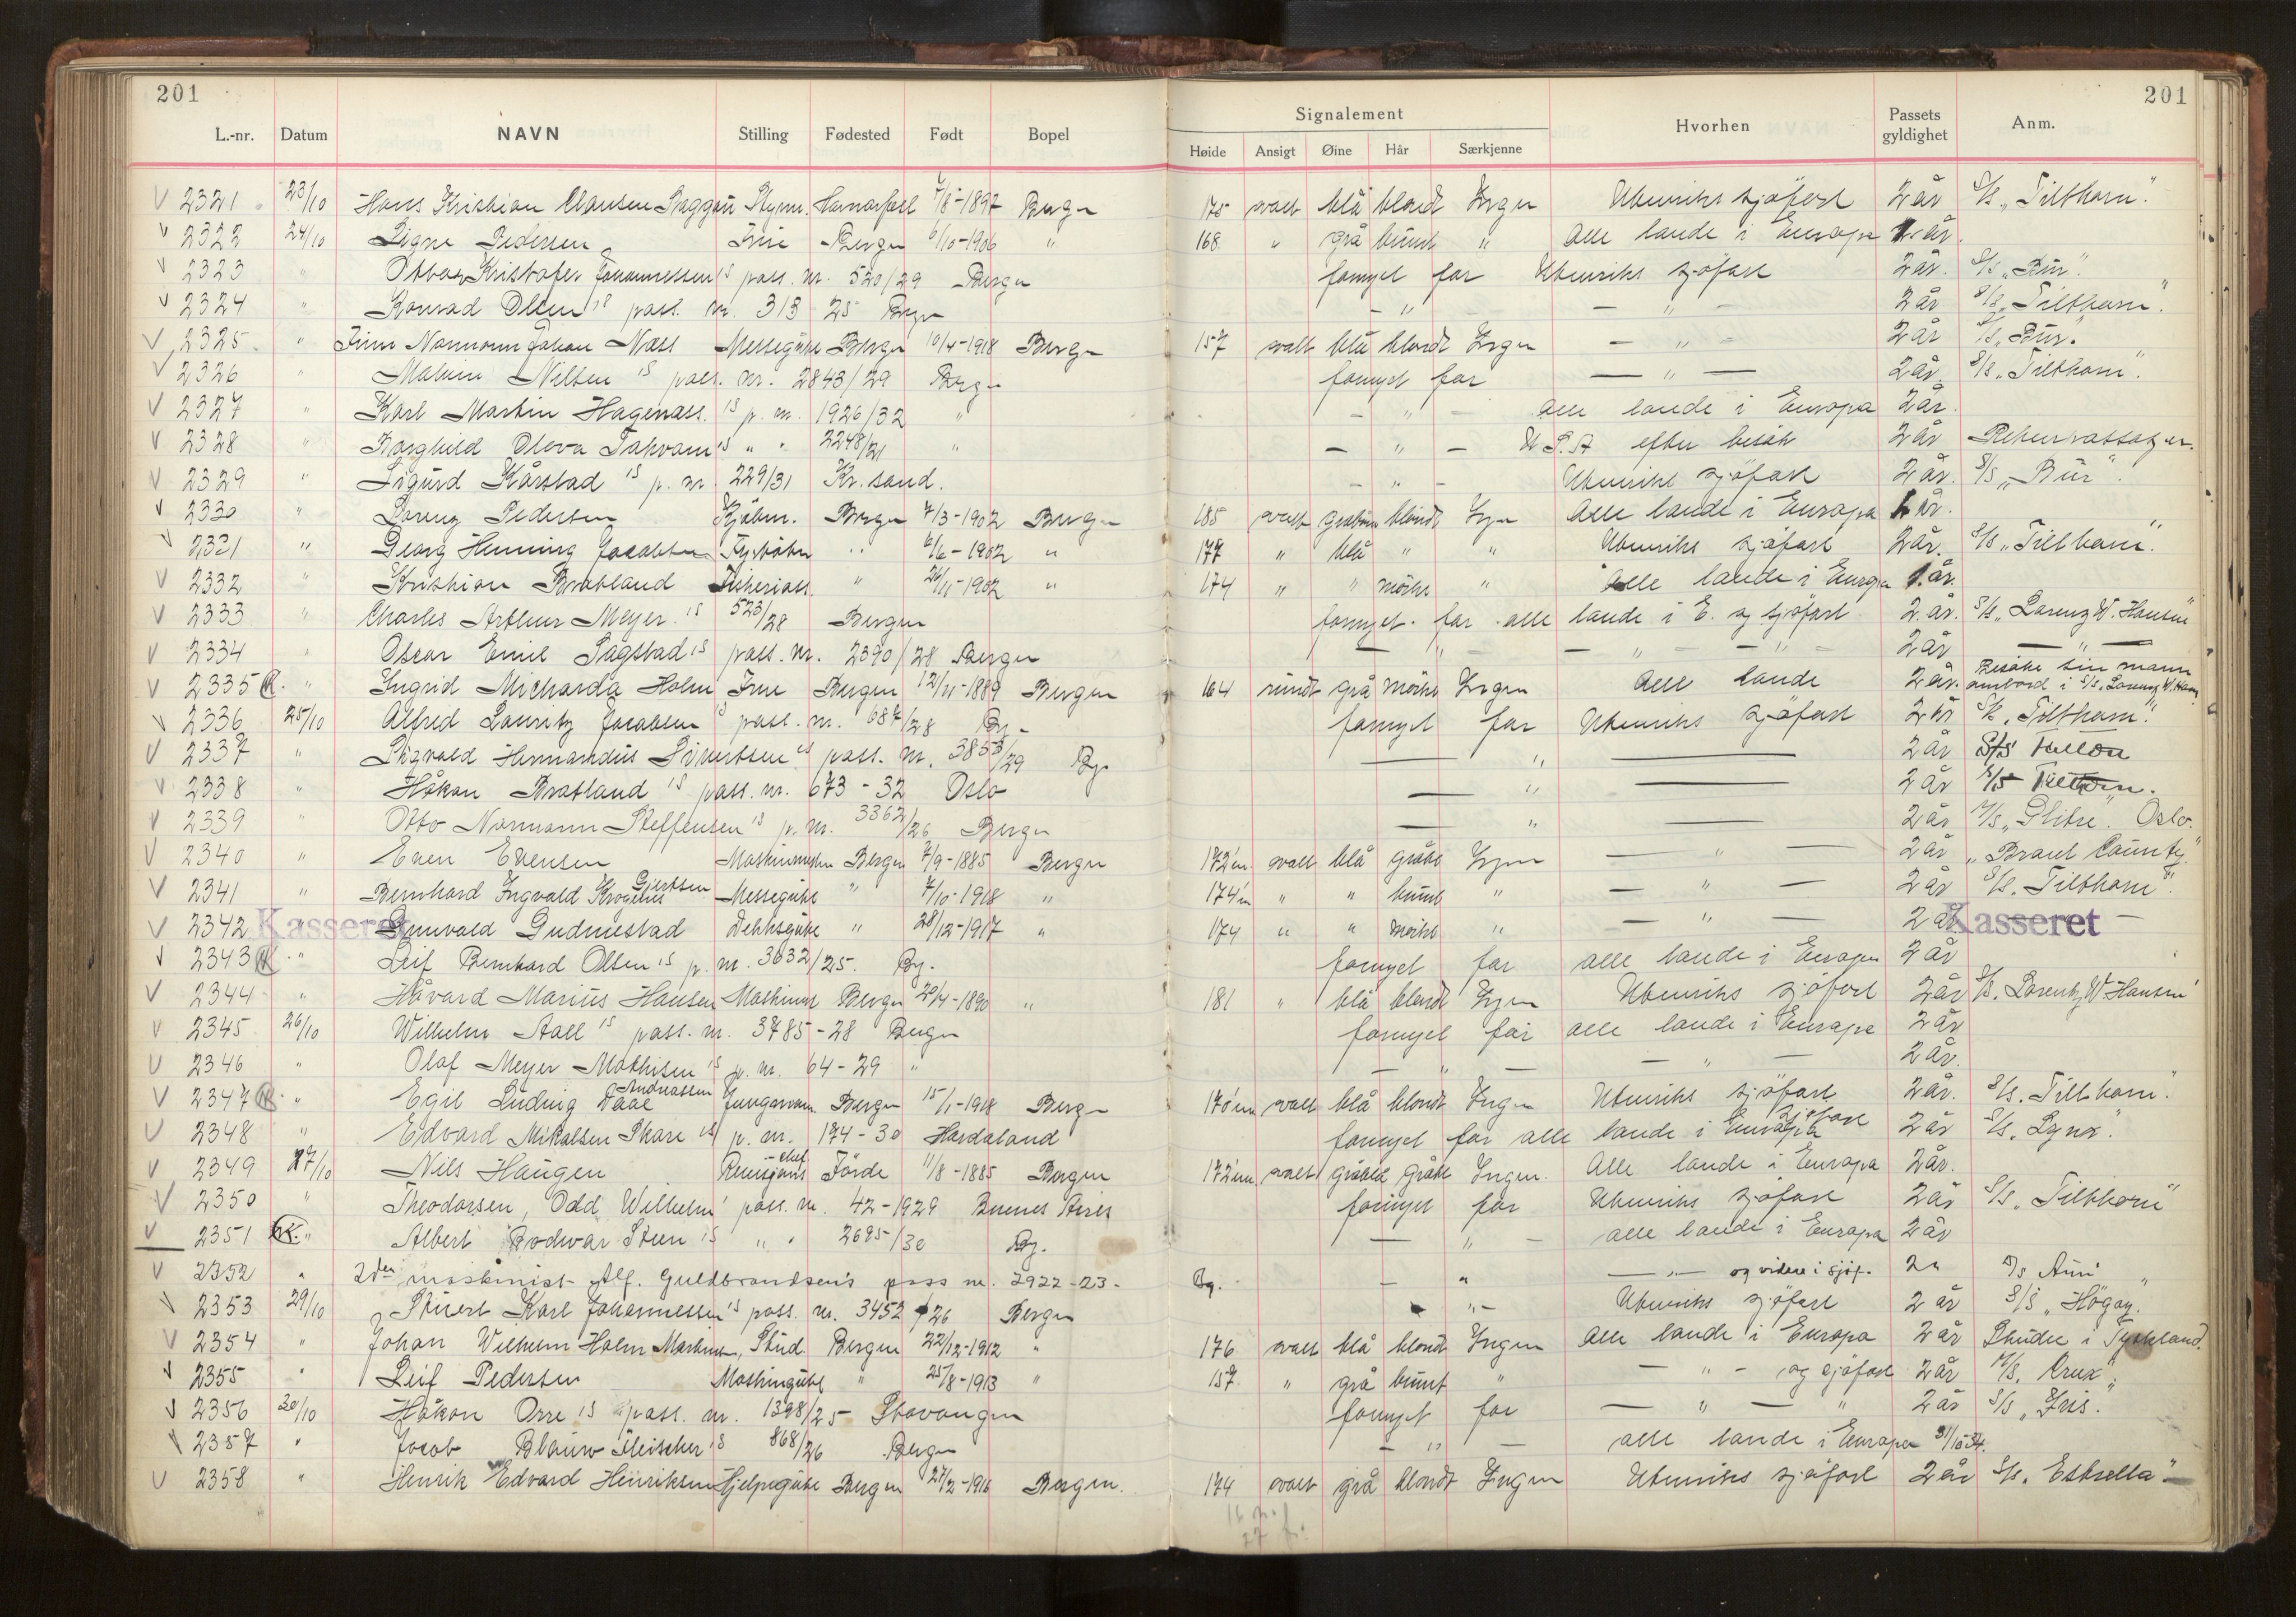 201
201
L.-nr. Datum NAVN Stilling Fødested Født Bopel
Signalement Hvorhen Passets gyldighet Anm.
Høide Ansigt Øine Hår Særkjenne
2321 23/10 Hans Kristian Clausen Styrm. 7/8-1897 Bergen 175 ovalt blå blondt Ingen Utenriks sjöfart 2 år S/s „Tilthorn".
2322 24/10 Signe Pedersen Frue Bergen 6/10-1906 " 168 " grå brunt " Alle lande i Europa 1 år.
2323 " Kristofer Johannessen's pass. nr. 520/29 Bergen fornyet for Utenriks sjöfart 2 år. S/s „Bur".
2324 " Konrad Olsen's pass. nr. 313 25 Bergen - " - - " - 2 år S/s „Tilthorn".
2325 " Finn Normann Johan Næss Messegutt Bergen 10/4-1918 Bergen 157 ovalt blå blondt Ingen - " - 2 år S/s „Bur".
2326 " Nilsen 's pass. nr. 2843/29 Bergen fornyet for - " - 2 år. S/s „Tilthorn".
2327 " Karl Martin Hagenæss. 's p. nr. 1926/32 " - " - alle lande i Europa 2 år.
2328 " Borghild Oleva 's " " 2248/21 " - " - U.S.A efter besök 2 år
2329 " Sigurd Kårstad 's p. nr. 229/31 Kr.sand. - " - Utenriks sjöfart 2 år. S/s „Bur".
2330 " Lorenz Pedersen Kjöbm. Bergen 7/3-1902 Bergen 185 ovalt gråbrun blondt Ingen Alle lande i Europa 1 år.
2331 " Georg Henning Jacobsen Fyrböter " 6/6-1902 " 177 " blå " " Utenriks sjöfart 2 år. S/s „Tilthorn".
2332 " Kristian Bratland Fiskeriass. " 1902 " 174 " " mörkt " Alle lande i Europa 1 år.
2333 " Charles Arthur Meyer. 's 523/28 Bergen fornyet for alle lande i E. og sjöfart 2. år. S/s „Lorenz W. Hansen"
2334 " Oscar Emil Sagstad's pass. nr. 2390/28 Bergen - " - - " - - " - 2 år - " -
2335 K. " Ingrid Micharda Holm Frue Bergen 12/11-1889 Bergen 164 rundt grå mörkt Ingen Alle lande 2 år. Besöke sin mann
ombord i S/s. Lorenz W. Hans.
2336 25/10 Alfred Lauritz Jacobsen 's pass. nr. 687/28 Bg- fornyet for Utenriks sjöfart 2 år S/s „Tilthorn".
2337 " Sigvald Hermandus Sivertsen's pass. nr. 3853/29 Bg. — " — 2 år S/s
2338 " Håkon Bratland 's pass. nr. 673-32 Oslo — " — 2 år S/s Tilthorn.
2339 " Otto Normann Steffensen's p. nr. 3362/26 Bergen — " — 2 år M/s „Glitre". Oslo.
2340 " Even Evensen Maskinmester Bergen 7/9-1885 Bergen 172 cm ovalt blå gråbl Ingen — " — 2 år „Brant County".
2341 " Bernhard Ingvald Krogelius Gjertsen Messegutt " 7/10-1918 " 174 cm " " brunt " — " — 2 år S/s. Tilthorn".
2342 Kasseret Gudmestad Dekksgutt " 28/12-1917 " 174 " " mörkt " — " — 2 år Kasseret —
2343 K. " Leif Bernhard Olsen's p. nr. 3632/25. Bg. fornyet for alle lande i Europa 2 år
2344 " Håvard Marius Hansen Maskinist Bergen 20/4-1890 " 181 " blå blondt Ingen Utenriks sjöfart 2 år S/s. Lorentz W Hansen'
2345 26/10 Wilhelm Aall 's pass. nr. 3785-28 Bergen fornyet for alle lande i Europa 2 år
2346 " Olaf Meyer Mathisen 's p. nr. 64-29 " — " — 2 år.
2347 K. " Egil Ludvig Daae Andreassen Jungmann Bergen 15/1-1918 Bergen 170 cm ovalt blå blondt Ingen Utenriks sjöfart 2 år. S/s. Tilthorn".
2348 " Edvard Mikalsen Skare 's p. nr. 174-30 Hordaland fornyet for alle lande i Europa sjöfart 2 år S/s. Lynx".
2349 27/10 Nils Haugen Revisjonschef Förde 11/8-1885 Bergen 172 cm ovalt gråblå gråbl Ingen. Alle lande i Europa 2 år.
2350 " Theodorsen, Odd Wilhelm' pass. nr. 42-1929 Buenos Aires fornyet for Utenriks sjöfart 2 år S/s „Tilthorn"
2351 K. " Albert Bodvar Steen 's " " 2695/30 Bg. — " - alle lande i Europa 2 år
2352 " 2den maskinist Alf. Guldbrandsen's pass nr. 2922-23- Bg. - " — " — og videre i sjöf. 2 " D/s
2353 29/10 Sivert Karl Johannessen's pass. nr. 3452/26 Bergen " - Utenriks sjöfart 2 år S/s „Högöy".
2354 " Johan Wilhelm Holm Martens, Stud. Bergen 22/12-1912 " 176 ovalt blå blondt Ingen alle lande i Europa 2 år Studie i Tyskland.
2355 " Leif Pedersen Maskingutt " 25/8-1913 " 157 " grå brunt " - " - og sjöfart 2 år M/s. Crux".
2356 30/10 Håkon Orre's pass. nr. 1398/25 Stavanger fornyet for — " — " 2 år S/s „Iris".
2357 " Jacob Blauw Fleischer's 868/26 Bergen - " — alle lande i Europa 31/10 34.
2358 " Henrik Edvard Henriksen Hjelpegutt Bergen 27/2-1916 Bergen. 174 ovalt grå blondt Ingen Utenriks sjöfart 2 år S/s. Estrella"